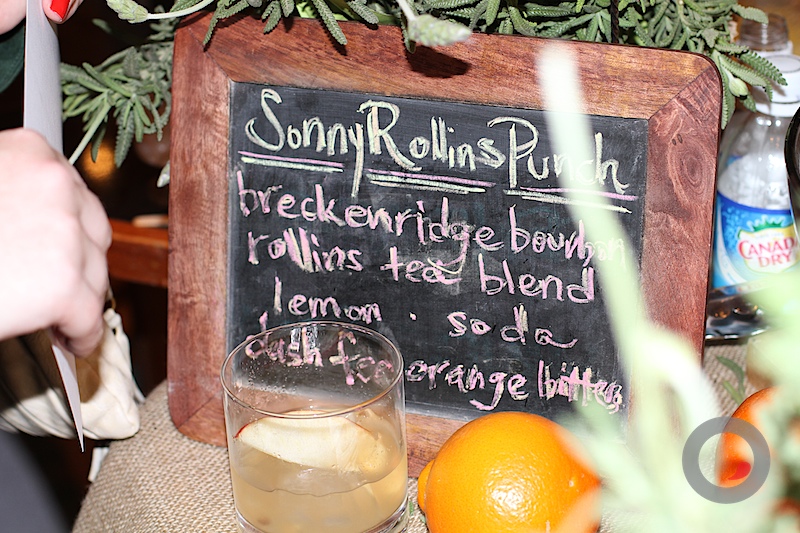 Sonny Rollins Punch
breckenridge bourbon
rollins tea blend
lemon · soda
dash fee orange bitters
CANADA
DRY